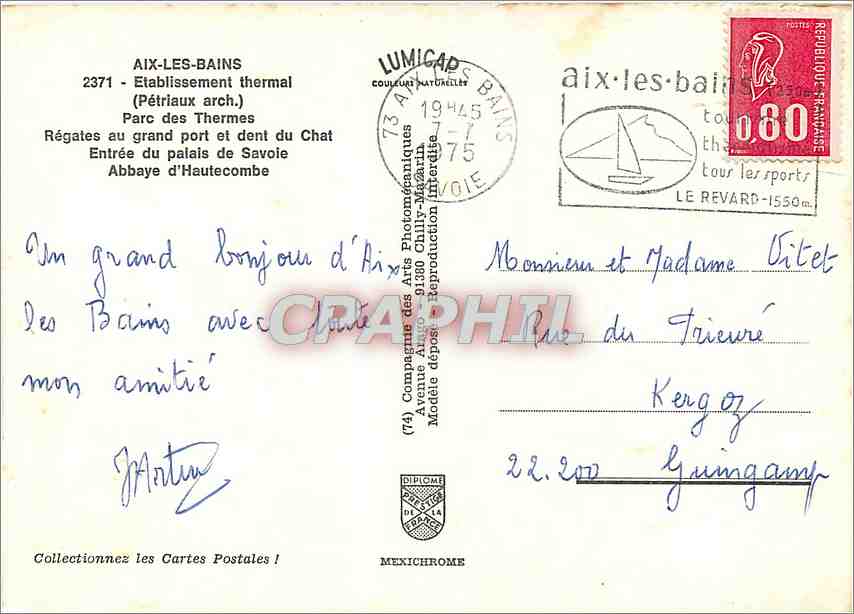 AIX-LES-BAINS
2371 - Etablissement thermal
(Pétriaux arch.)
Parc des Thermes
Régates au grand port et dent du Chat
Entrée du palais de Savoie
Abbaye d'Hautecombe
LUMICAP
COULEURS NATURELLES
73 AIX LES BAINS
19H45
7-7
1975
SAVOIE
aix·les·bains
tourisme
thermalisme
tous les sports
LE REVARD-1550m.
POSTES
REPUBLIQUE FRANCAISE
0,80
Un grand bonjour d'Aix
les Bains avec toute
mon amitié
(74) Compagnie des Arts Photomécaniques
Avenue Arago - 91380 Chilly-Mazarin
Modèle déposé - Reproduction interdite
CPAPHIL
Monsieur et Madame Vitet
Rue du Prieuré
Kergoz
22.200 Guingamp
DIPLOME
PRESTIGE
DE LA
FRANCE
Collectionnez les Cartes Postales !
MEXICHROME